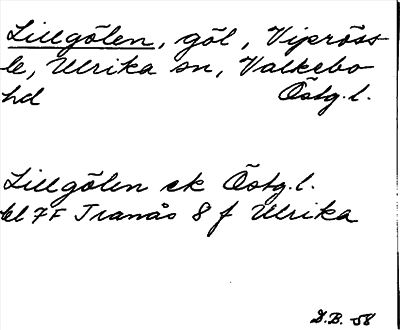 Lillgölen, göl, Vipröss-
le, Ulrika sn, Valkebo
hd Östg.l.
Lillgölen ek Östg.l.
bl 7F Tranås 8 f Ulrika
D.B. 58